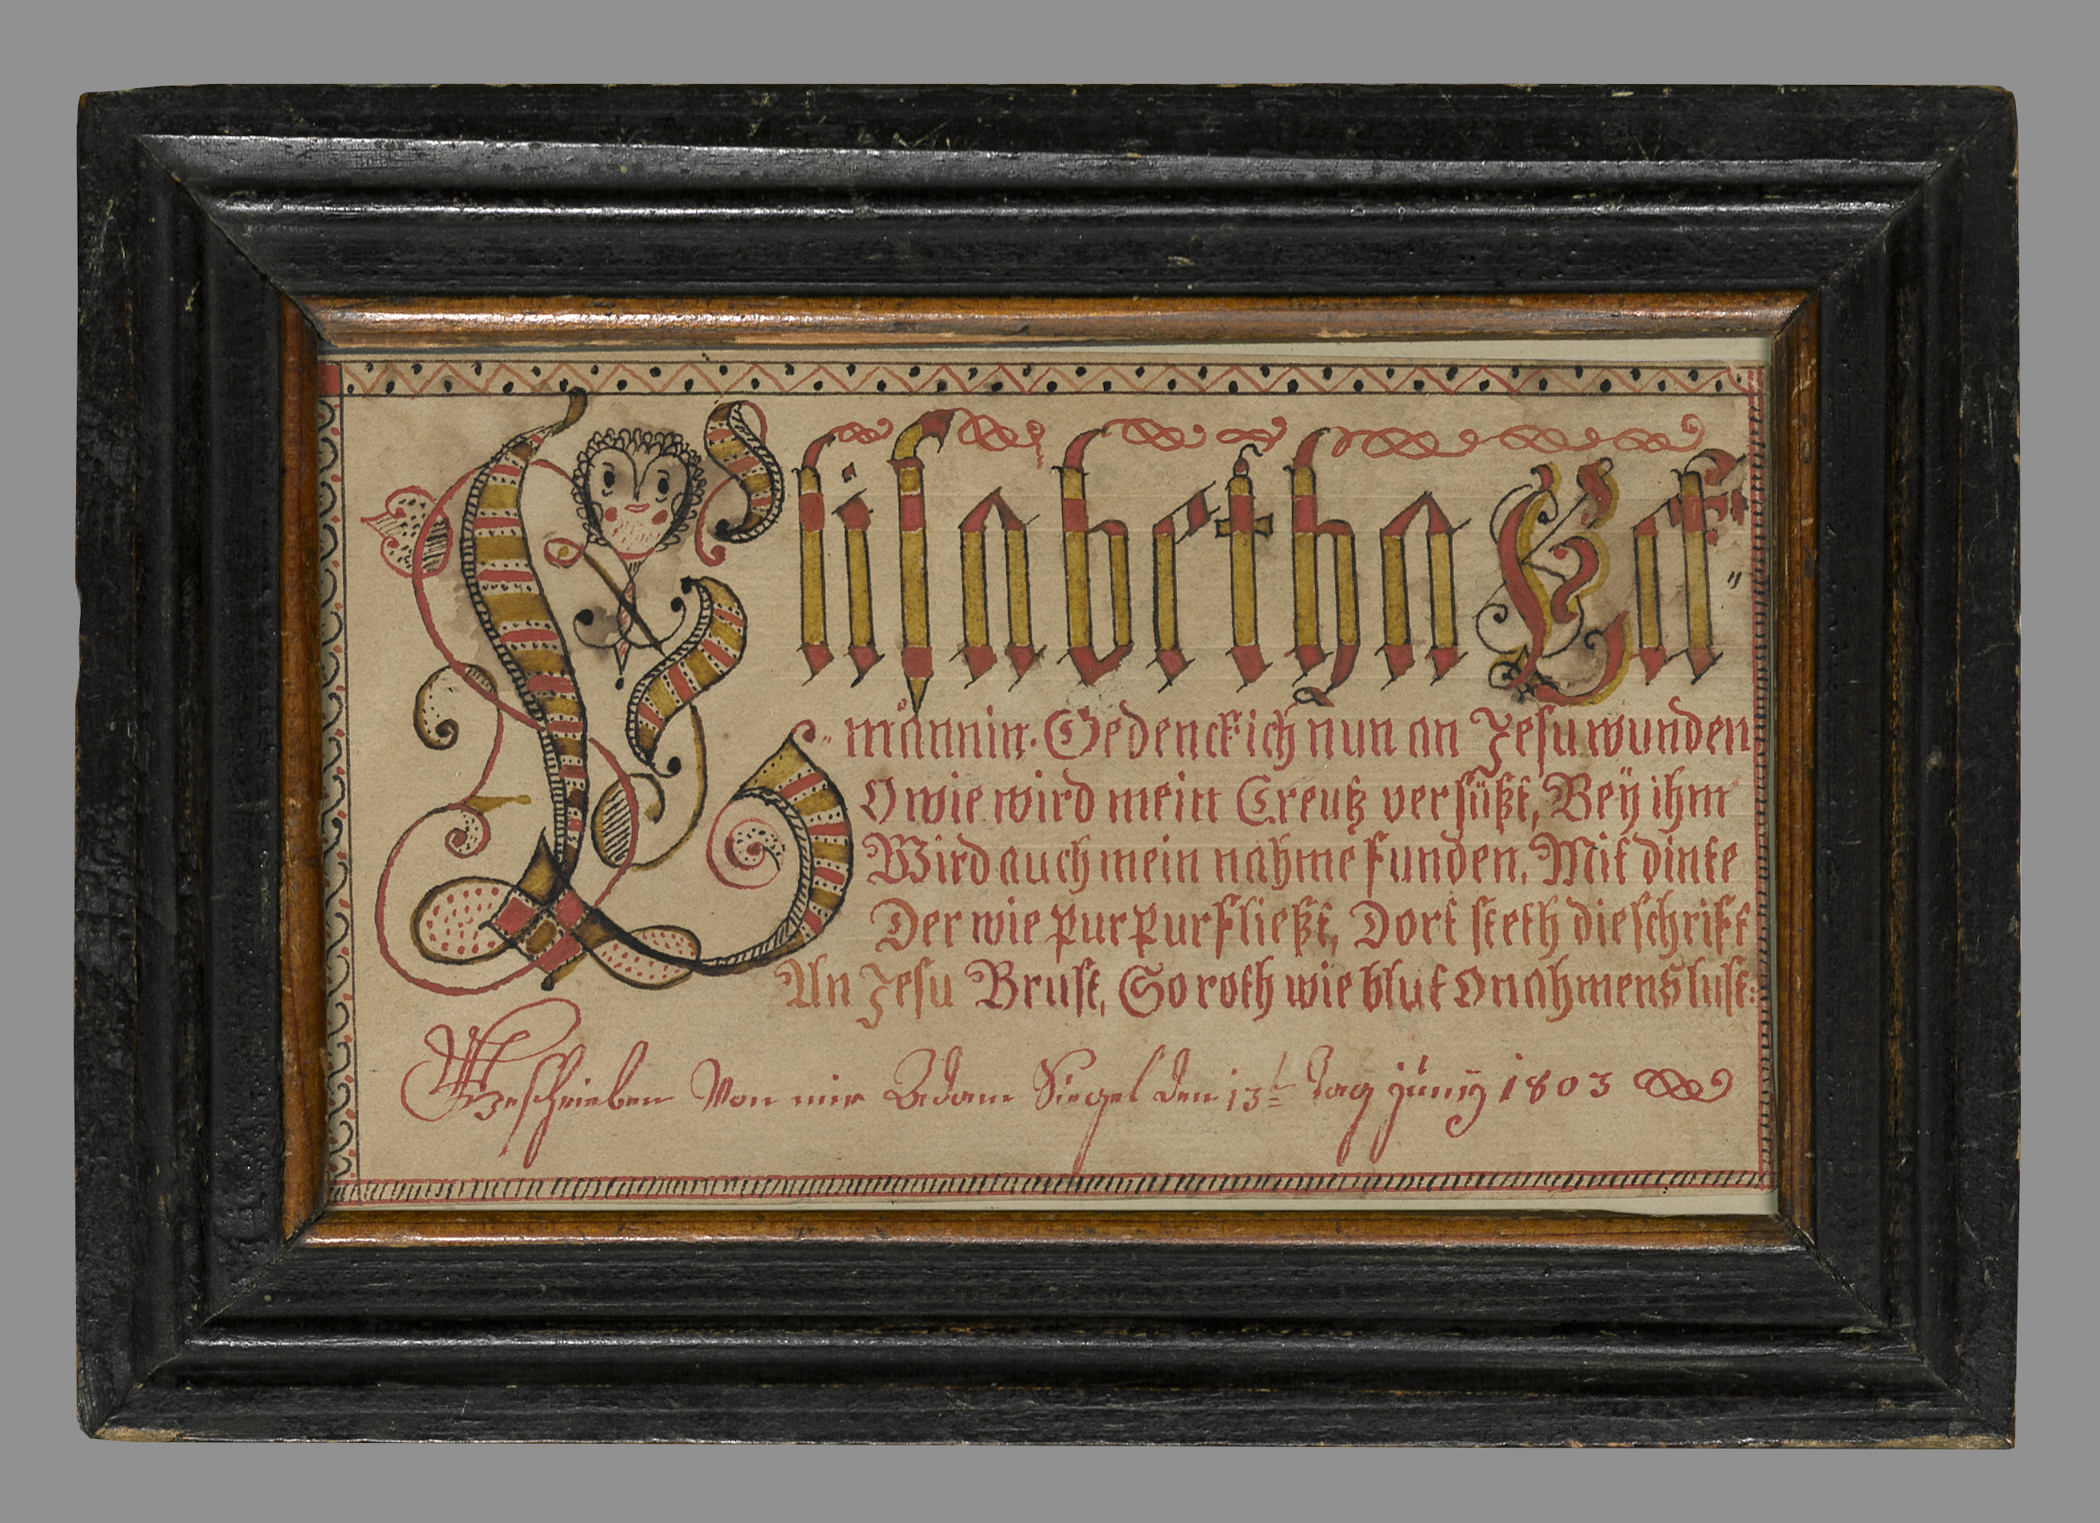 Elisabetha Eck=
=männin. Gedenck ich nun an Jesu wunden
O wie wird mein Creutz versüßt, Beÿ ihm
Wird auch mein nahme funden. Mit dinte
Der wie purpur fließt, Dort steth die schrift
An Jesu Brust, So roth wie blut O nahmens lust:
Geschrieben Von mir Adam Siegel den 13t Tag junÿ 1803